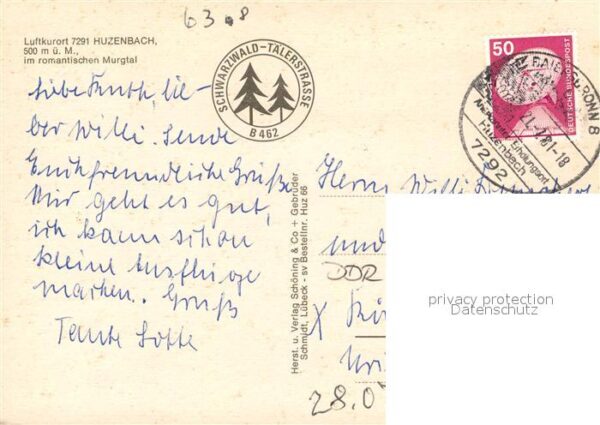 63.8
Luftkurort 7291 HUZENBACH,
500 m ü. M.,
im romantischen Murgtal
SCHWARZWALD-TÄLERSTRASSE
B 462
50
DEUTSCHE BUNDESPOST
BAIERSBRONN 8
-18
Anerkannter Erholungsort
Huzenbach
7292
Liebe Ruth, lie-
ber Willi. Sende
Euch freundliche Grüße
Mir geht es gut,
ich kann schon
kleine Ausflüge
machen. Gruß
Tante Lotte
Herst. u. Verlag Schöning & Co + Gebrüder
Schmidt, Lübeck - sv Bestellnr. Huz 66
Herrn Willi
und
DDR
X
28.0
privacy protection
Datenschutz